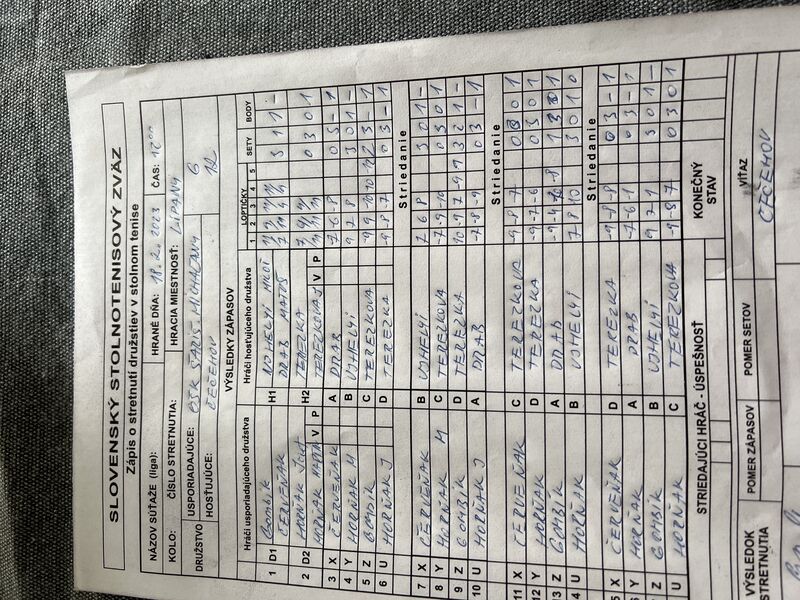 SLOVENSKÝ STOLNOTENISOVÝ ZVÄZ
Zápis o stretnutí družstiev v stolnom tenise
NÁZOV SÚŤAŽE (liga): HRANÉ DŇA: 18.2.2023 ČAS:
KOLO: ČÍSLO STRETNUTIA: HRACIA MIESTNOSŤ: LIPANY
DRUŽSTVO USPORIADAJÚCE: OŠK ŠARIŠ. MICHAĽANY 6
HOSŤUJÚCE: ČEČEHOV 12
VÝSLEDKY ZÁPASOV
Hráči usporiadajúceho družstva Hráči hosťujúceho družstva LOPTIČKY SETY BODY
1 2 3 4 5
1 D1 GOMBÍK H1 UJHELYI
ČERVEŇAK DRAB MATÚŠ 3 1 1 -
2 D2 HORŇAK H2 TEREZKA
HORŇAK V P TEREZKOVA V P 0 3 0 1
3 X ČERVEŇAK A DRAB -7 -6 -8 0 3 - 1
4 Y HORŇAK M B UJHELYI 9 7 8 3 0 1 -
5 Z GOMBÍK C TEREZKOVA
6 U HORŇAK J D TEREZKA -9 -8 -7 0 3 - 1
Striedanie
7 X ČERVEŇAK B UJHELYI 7 6 8 3 0 1 -
8 Y HORŇAK M C TEREZKOVA -7 -9 -10 0 3 0 1
9 Z GOMBÍK D TEREZKA 10 -9 7 -9 7 3 2 1 -
10 U HORŇAK J A DRAB -7 -8 -9 0 3 - 1
Striedanie
11 X ČERVEŇAK C TEREZKOVA -9 -8 -7 0 3 0 1
12 Y HORŇAK D TEREZKA -9 -7 -6 0 3 0 1
13 Z GOMBÍK A DRAB
4 U HORŇAK B UJHELYI 7 8 10 3 0 1 0
Striedanie
5 X ČERVEŇAK D TEREZKA -9 -8 -8 0 3 - 1
Y HORŇAK A DRAB -7 -6 -1 0 3 - 1
Z GOMBÍK B UJHELYI 9 7 1 3 0 1 -
U HORŇAK C TEREZKOVA -9 -8 -7 0 3 0 1
STRIEDAJÚCI HRÁČ - ÚSPEŠNOSŤ KONEČNÝ
STAV
VÝSLEDOK
STRETNUTIA
POMER ZÁPASOV POMER SETOV VÍŤAZ
ČEČEHOV